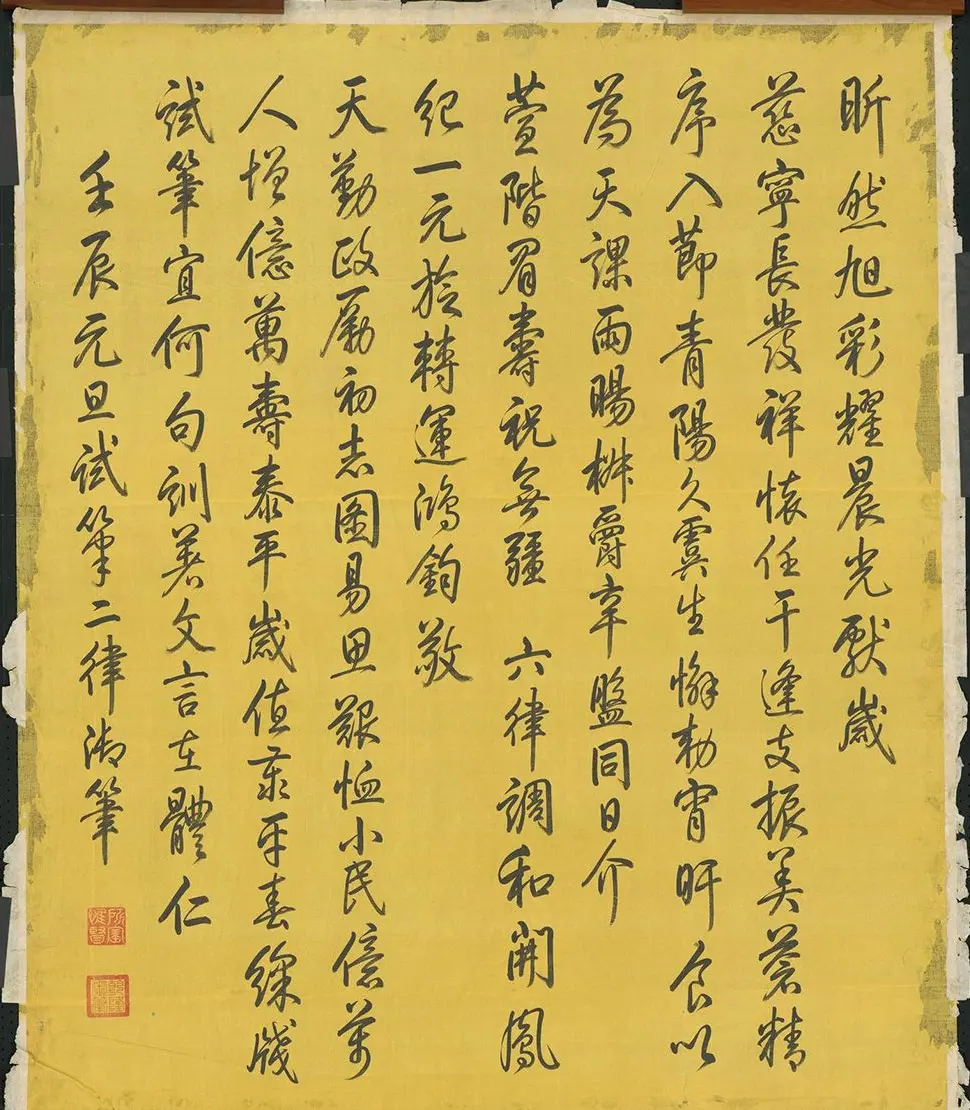 昕然旭彩耀晨光獻歲
慈寧長發祥懷任干逢支振美蒼精
序入節青陽久虞生懈勑宵旰食以
為天課雨暘椒爵辛盤同日介
萱階眉壽祝無疆 六律調和開鳳
紀一元捻轉運鴻鈞敬
天勤政勵初志圖易思艱恤小民億萬
人增億萬壽泰平歲值平春綵牋
試筆宜何句訓著文言在體仁
壬辰元旦試筆二律御筆
所寶惟賢